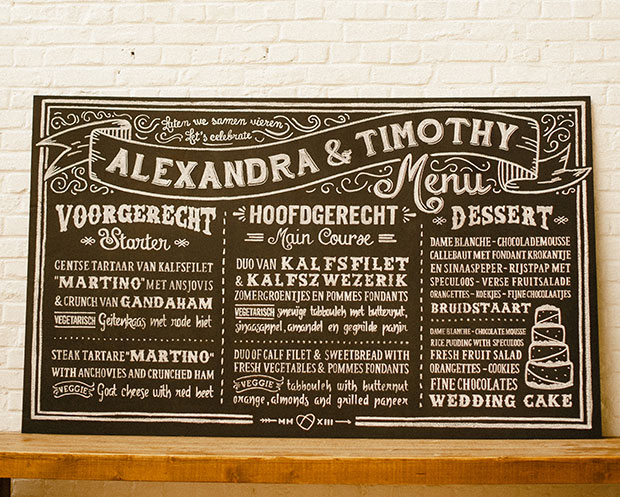 Laten we samen vieren
Let's celebrate
ALEXANDRA & TIMOTHY
Menu
VOORGERECHT
Starter
GENTSE TARTAAR VAN KALFSFILET
"MARTINO" MET ANSJOVIS
& CRUNCH VAN GANDAHAM
VEGETARISCH Geitenkaas met rode biet
STEAK TARTARE "MARTINO"
WITH ANCHOVIES AND CRUNCHED HAM
VEGGIE Goat cheese with red beet
HOOFDGERECHT
Main Course
DUO VAN KALFSFILET
& KALFSZWEZERIK
ZOMERGROENTJES EN POMMES FONDANTS
VEGETARISCH smeuïge tabbouleh met butternut,
sinaasappel, amandel en gegrilde panir
DUO OF CALF FILET & SWEETBREAD WITH
FRESH VEGETABLES & POMMES FONDANTS
VEGGIE tabbouleh with butternut
orange, almonds and grilled paneer
DESSERT
DAME BLANCHE - CHOCOLADEMOUSSE
CALLEBAUT MET FONDANT KROKANTJE
EN SINAASPEPER - RIJSTPAP MET
SPECULOOS - VERSE FRUITSALADE
ORANGETTES - KOEKJES - FIJNE CHOCOLAATJES
BRUIDSTAART
DAME BLANCHE - CHOCOLATE MOUSSE
RICE PUDDING WITH SPECULOOS
FRESH FRUIT SALAD
ORANGETTES - COOKIES
FINE CHOCOLATES
WEDDING CAKE
MM XIII